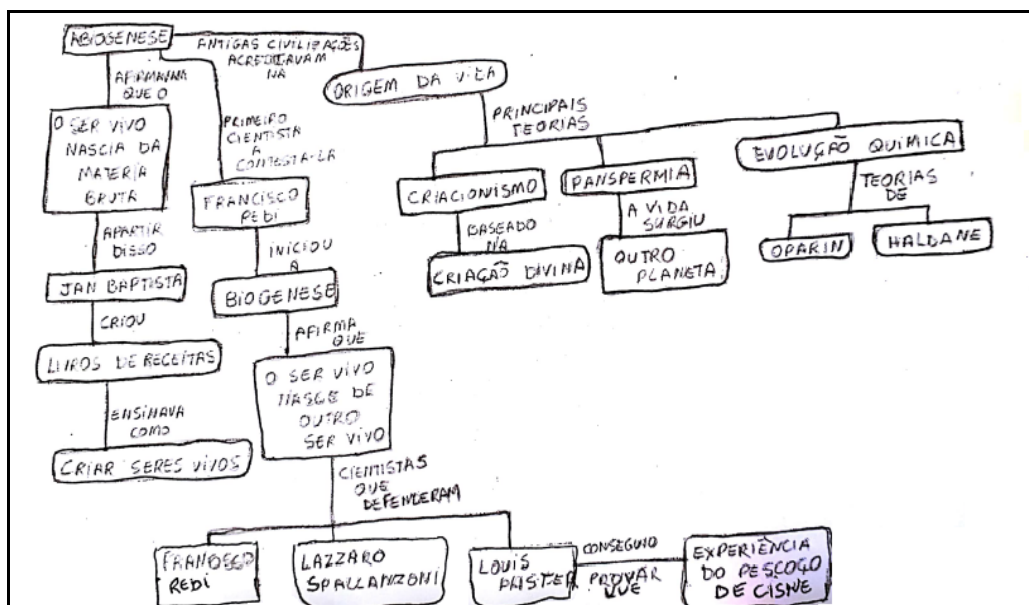 ABIOGENESE
ANTIGAS CIVILIZAÇÕES
ACREDITAVAM
NA
ORIGEM DA VIDA
AFIRMAVA
QUE O
O SER VIVO
NASCIA DA
MATERIA
BRUTA
APARTIR
DISSO
JAN BAPTISTA
CRIOU
LIVROS DE RECEITAS
ENSINAVA
COMO
CRIAR SERES VIVOS
PRIMEIRO
CIENTISTA
A
CONTESTA-LA
FRANCISCO
REDI
INICIOU
A
BIOGENESE
AFIRMA
QUE
O SER VIVO
NASCE DE
OUTRO
SER VIVO
CIENTISTAS
QUE
DEFENDERAM
FRANCISCO
REDI
LAZZARO
SPALLANZONI
LOUIS
PASTER
CONSEGUIO
PROVAR
QUE
EXPERIÊNCIA
DO PESCOÇO
DE CISNE
PRINCIPAIS
TEORIAS
CRIACIONISMO
BASEADO
NA
CRIAÇÃO DIVINA
PANSPERMIA
A VIDA
SURGIU
OUTRO
PLANETA
EVOLUÇÃO QUÍMICA
TEORIAS
DE
OPARIN
HALDANE